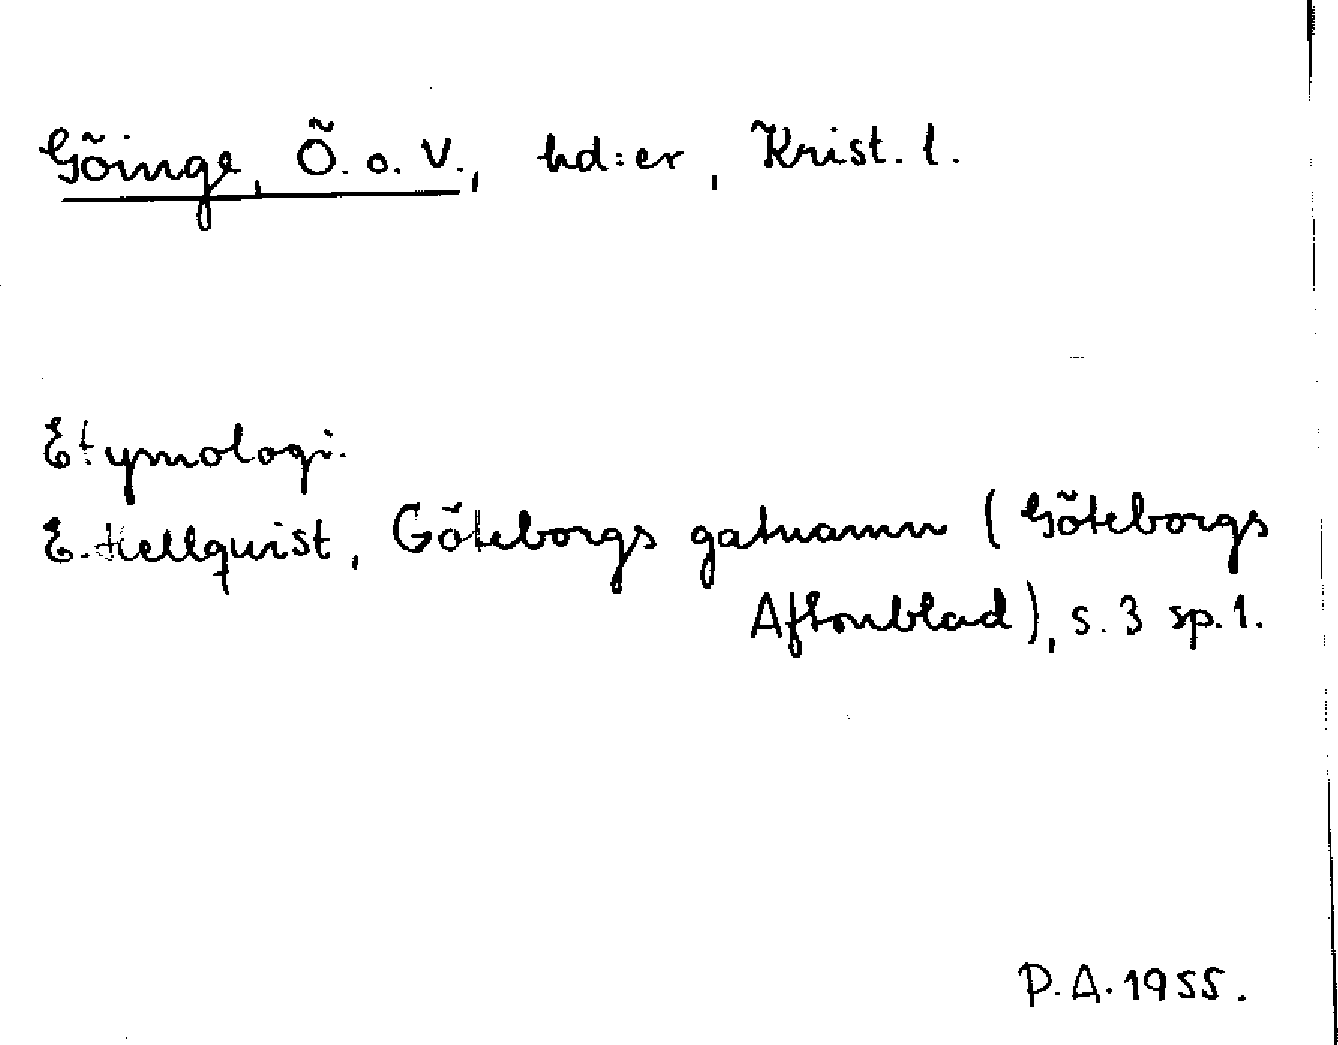 Göinge, Ö. o. V., hd:er, Krist. l.
Etymologi.
E. Hellquist, Göteborgs gatnamn (Göteborgs
Aftonblad), s. 3 sp. 1.
P. A. 1955.